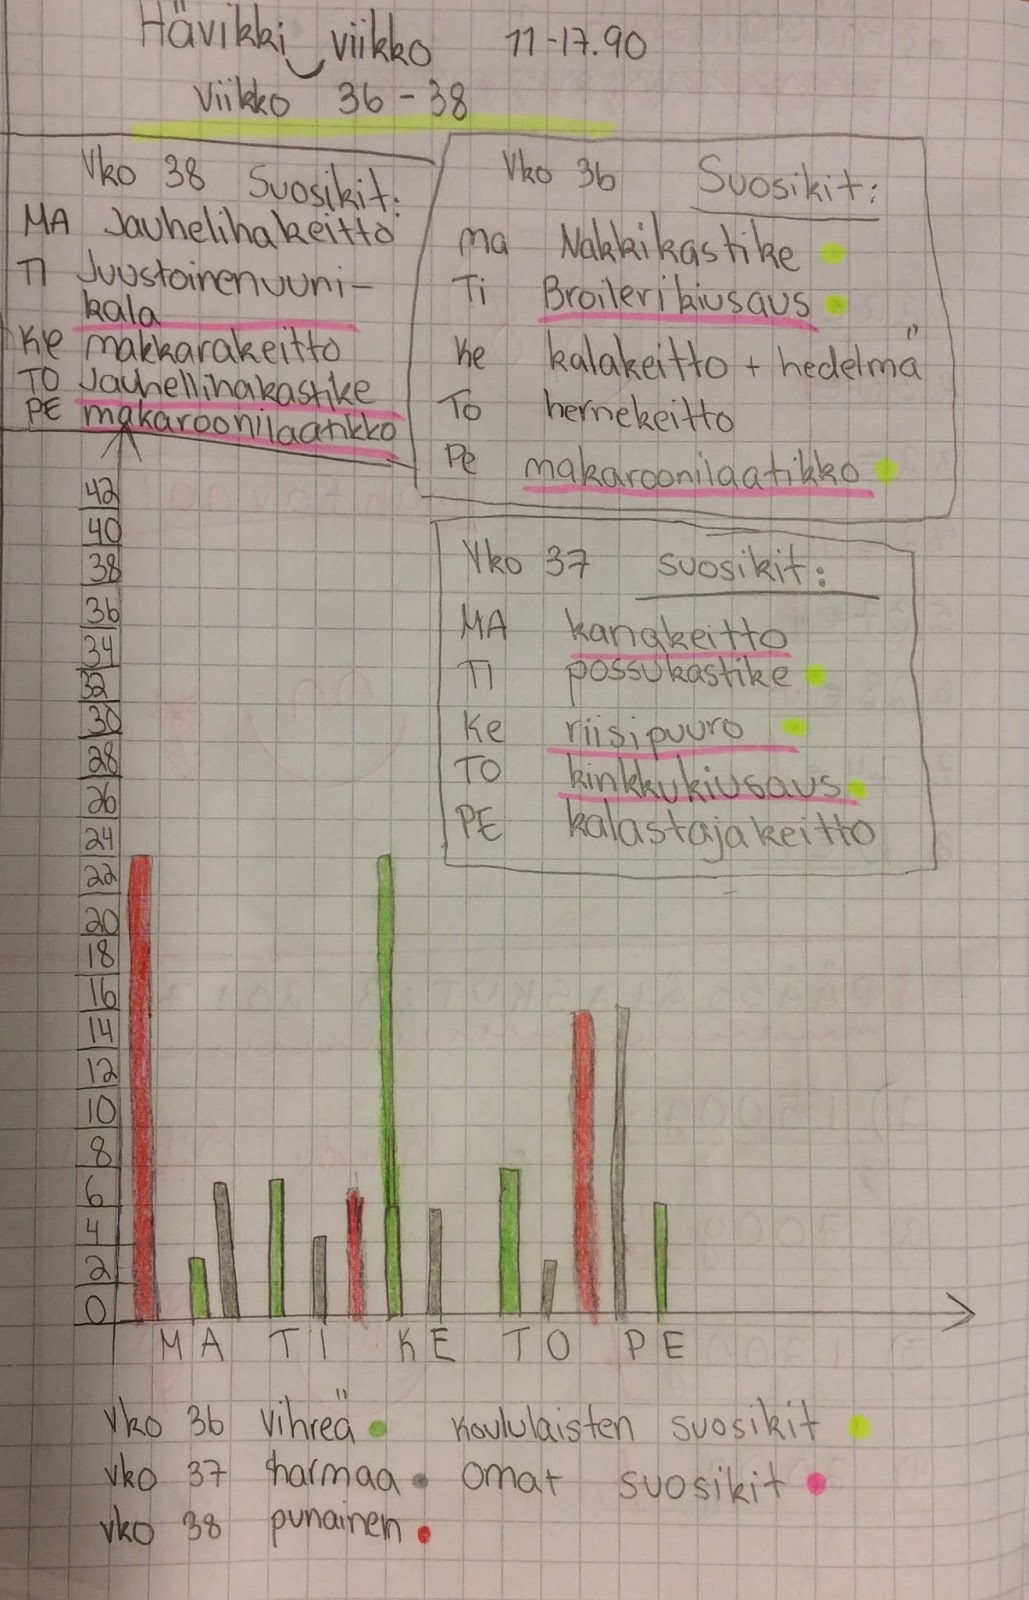 Hävikki viikko 11-17.90
Viikko 36-38
Vko 38 Suosikit:
MA Jauhelihakeitto
TI Juustoinenuuni-
kala
Ke makkarakeitto
TO Jauhellihakastike
PE makaroonilaatikko
Vko 36 Suosikit:
ma Nakkikastike
Ti Broilerikiusaus
Ke kalakeitto + hedelmä
To hernekeitto
Pe makaroonilaatikko
Vko 37 suosikit:
MA kanakeitto
TI possukastike
Ke riisipuuro
TO kinkkukiusaus
PE kalastajakeitto
42
40
38
36
34
32
30
28
26
24
22
20
18
16
14
12
10
8
6
4
2
0
MA TI KE TO PE
vko 36 vihreä koululaisten suosikit
vko 37 harmaa omat suosikit
vko 38 punainen